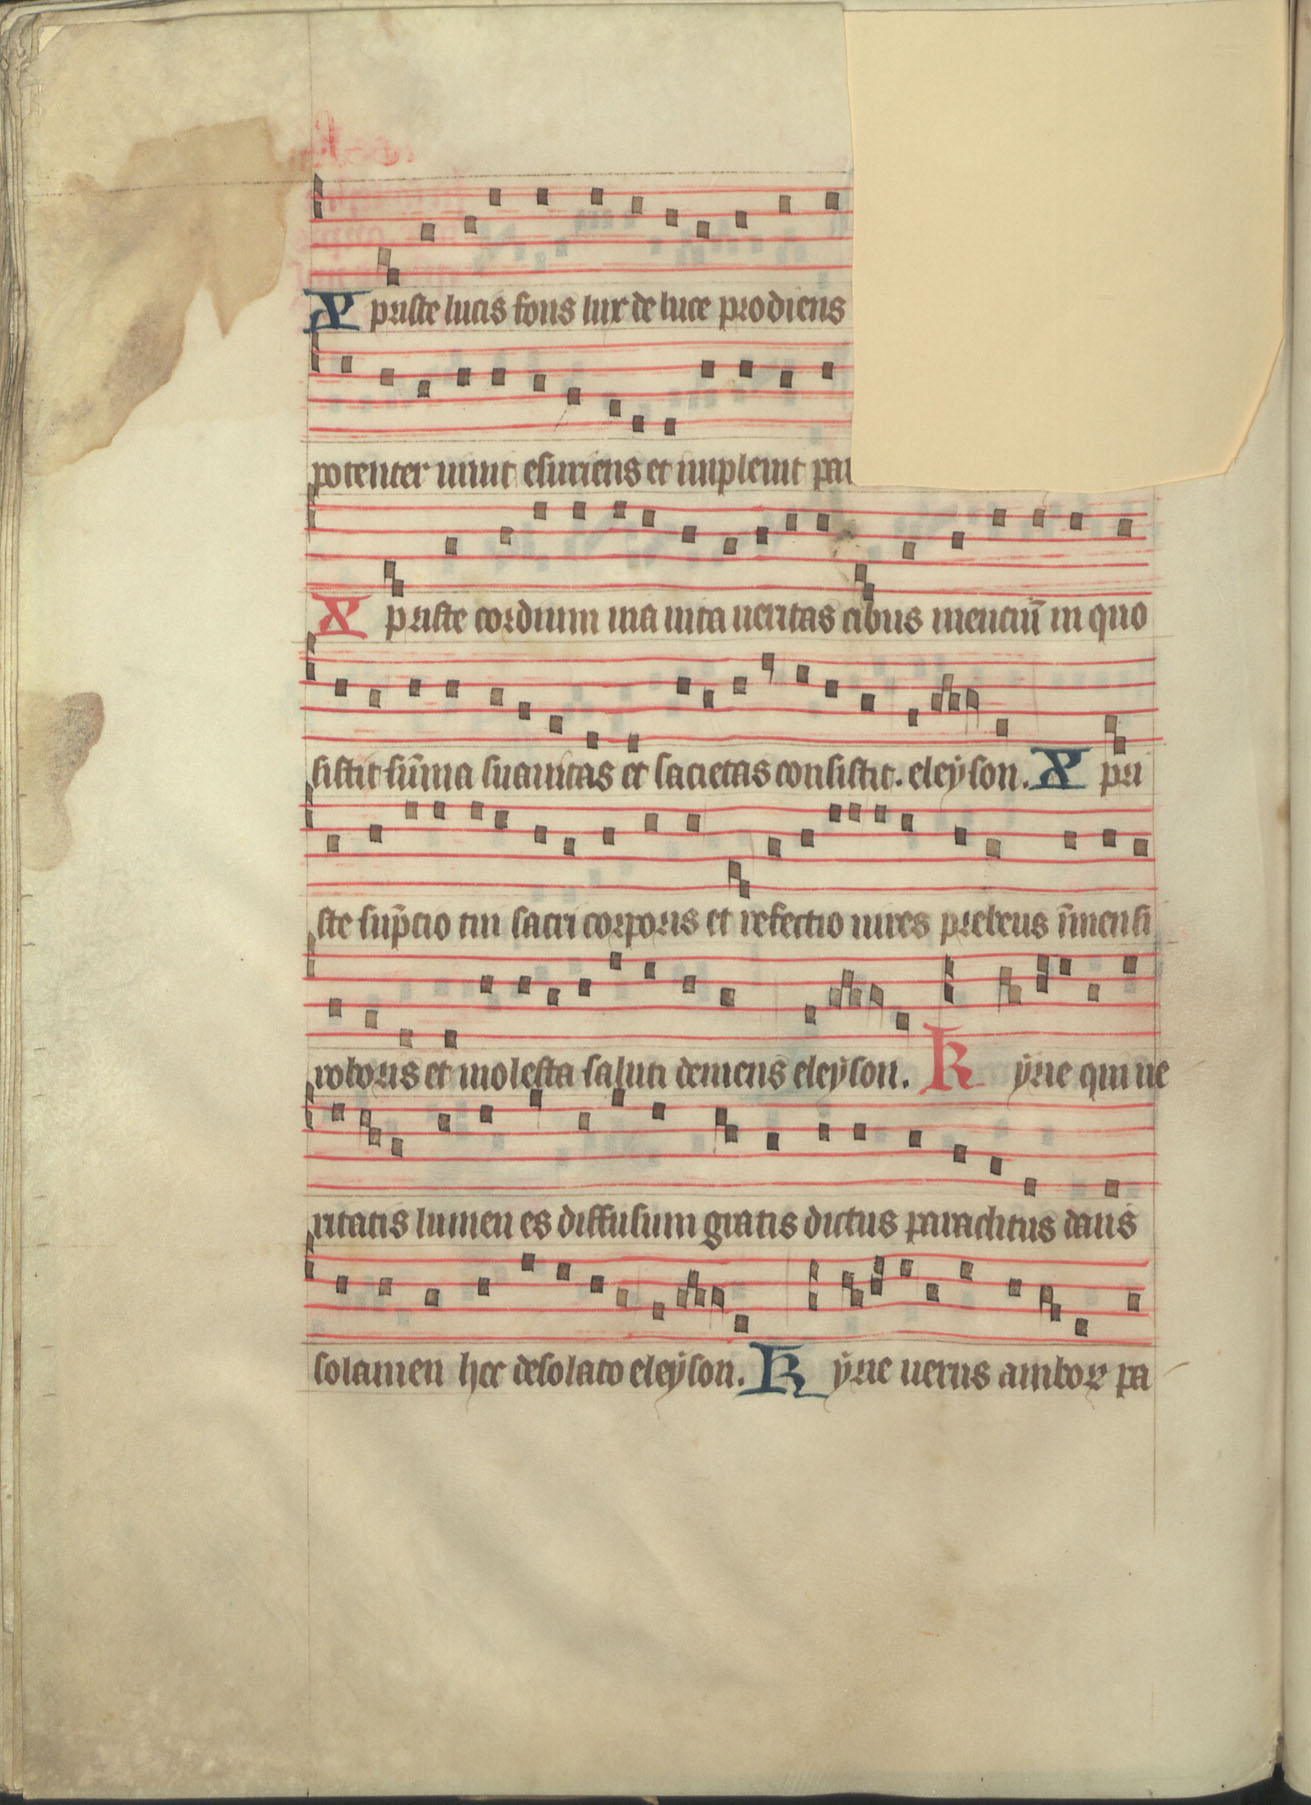 Xpriste lucis fons lux de luce prodiens
potenter uiuit esuriens et impleuit
Xpriste cordium uia uita ueritas cibus menciū in quo
sistit sūma suauitas et sacietas consistit. eleyson. Xpri
ste sūpcio tui sacri corporis et refectio uires prebens īmensi
roboris et molesta saluti demens eleyson. Kyrie qui ue
ritatis lumen es diffusum gratis dictus paraclitus dans
solamen hec desolato eleyson. Kyrie uerus amborꝝ pa